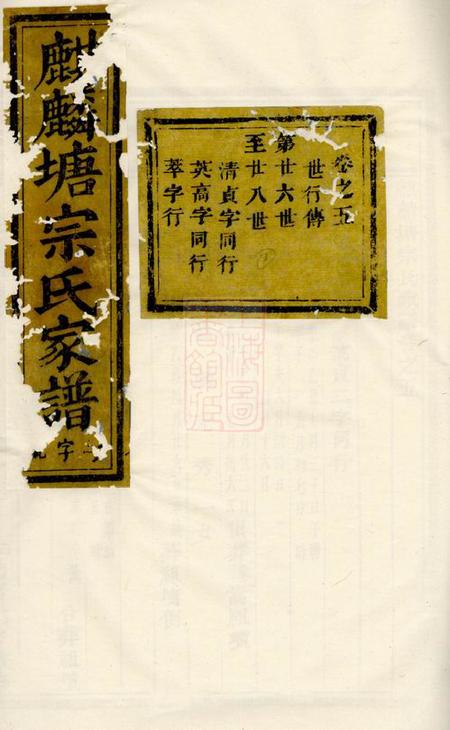 麒麟塘宗氏家譜
字
卷之五
世行傳
第廿六世
至廿八世
清貞字同行
英高字同行
萃字行